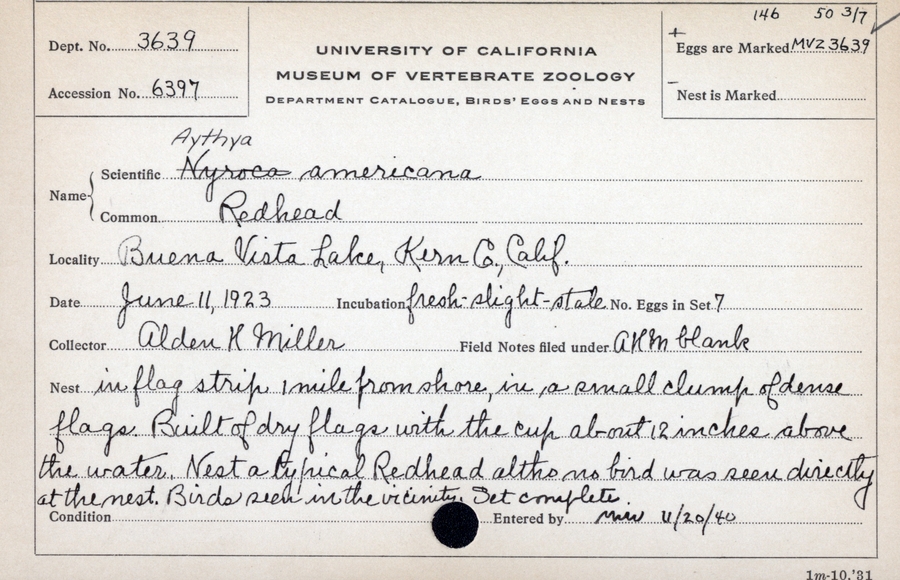 146 50 3/7
Dept. No. 3639
UNIVERSITY OF CALIFORNIA
MUSEUM OF VERTEBRATE ZOOLOGY
DEPARTMENT CATALOGUE, BIRDS' EGGS AND NESTS
+
Eggs are Marked MVZ 3639
Accession No. 6397
-
Nest is Marked
Aythya
Name { Scientific Nyroca americana
Common Redhead
Locality Buena Vista Lake, Kern Co., Calif.
Date June 11, 1923 Incubation fresh-slight-stale No. Eggs in Set 7
Collector Alden H Miller Field Notes filed under AHM blank
Nest in flag strip 1 mile from shore, in a small clump of dense
flags. Built of dry flags with the cup about 12 inches above
the water. Nest a typical Redhead altho no bird was seen directly
at the nest. Birds seen in the vicinity. Set complete.
Condition Entered by 11/20/40
1m-10,'31